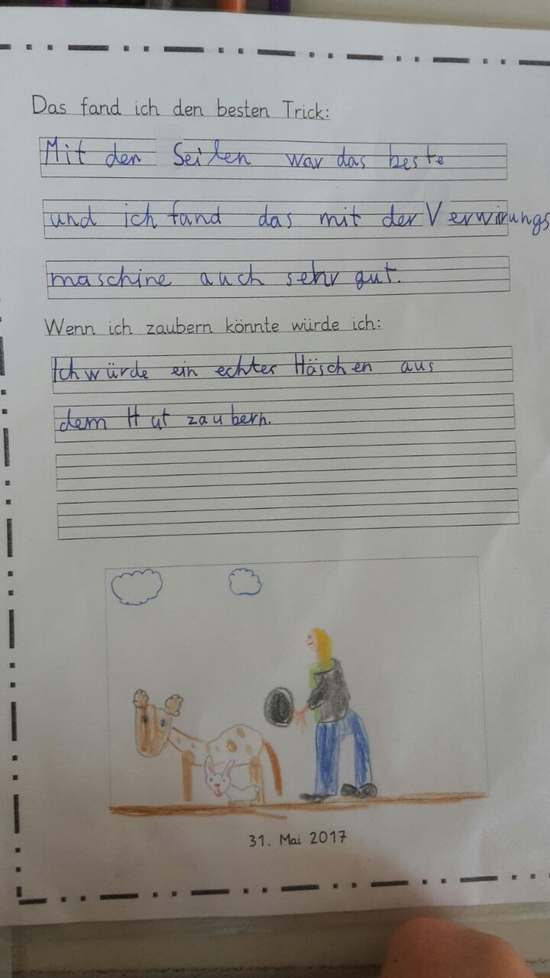 Das fand ich den besten Trick:
Mit den Seilen war das beste
und ich fand das mit der Verwirungs
maschine auch sehr gut.
Wenn ich zaubern könnte würde ich:
Ich würde ein echter Häschen aus
dem Hut zaubern.
31. Mai 2017